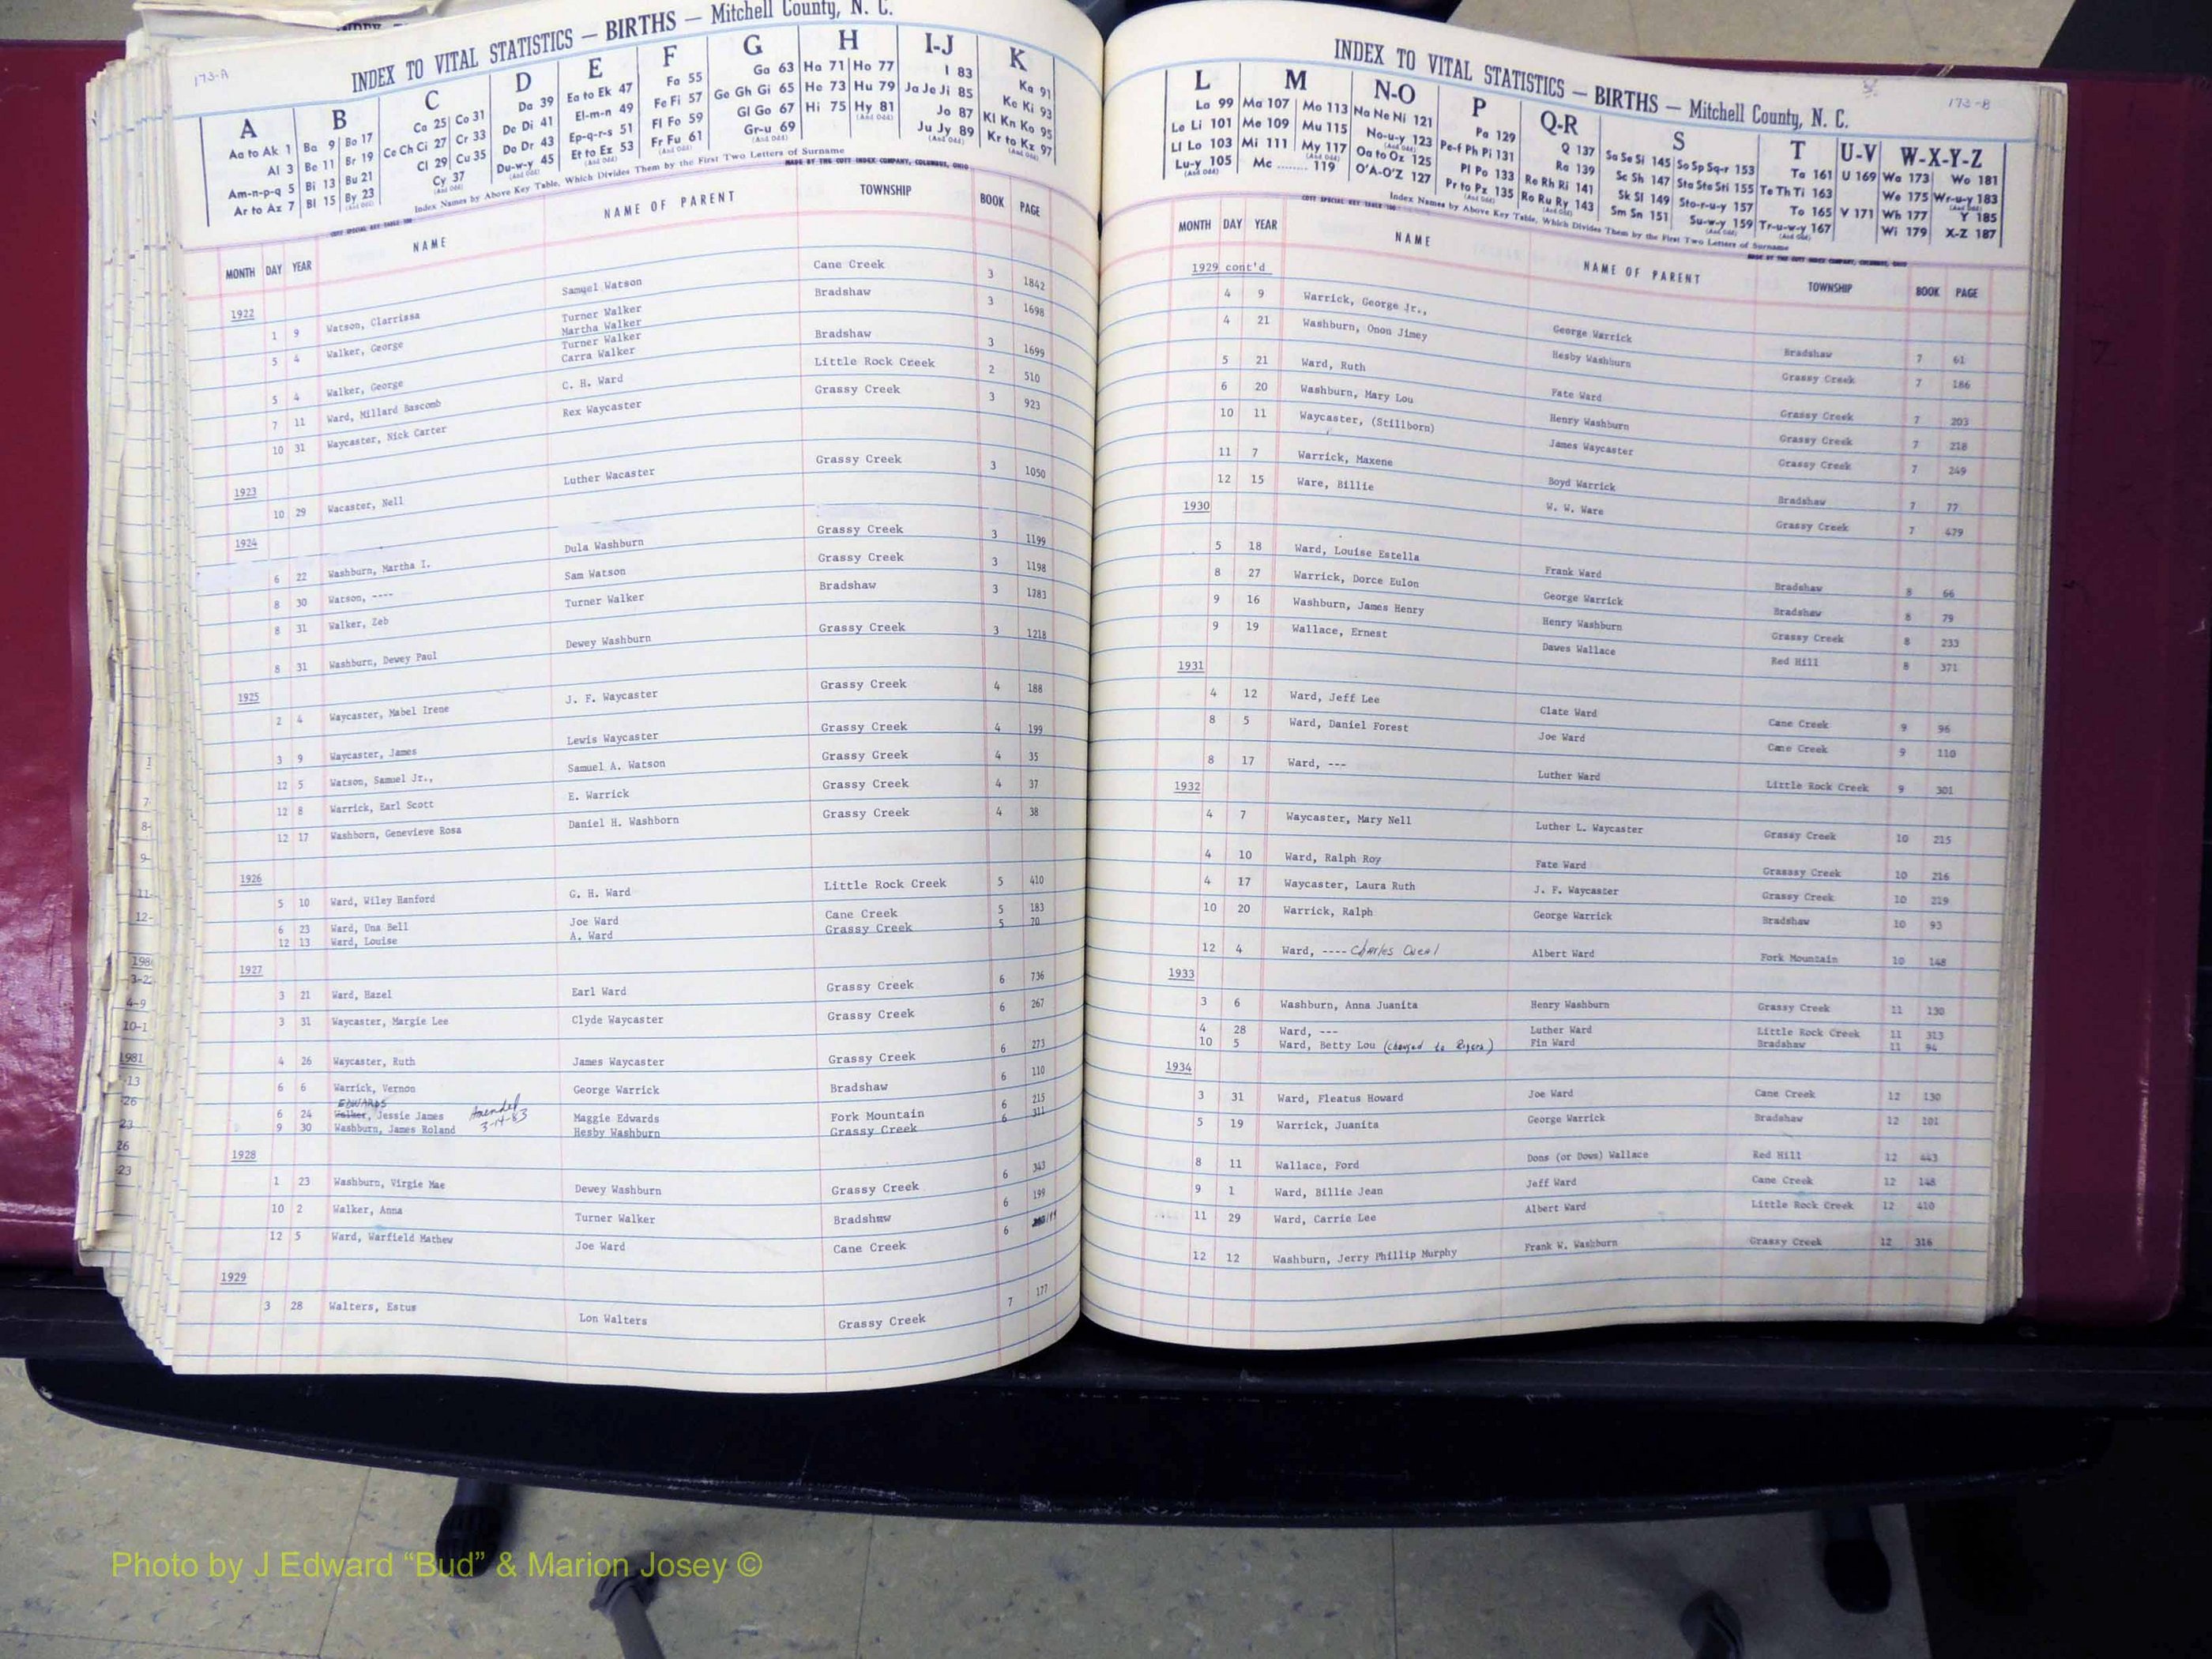 173-A
INDEX TO VITAL STATISTICS — BIRTHS — Mitchell County, N. C.
A B C D E F G H I-J K
Aa to Ak 1 Ba 9 Bo 17 Ca 25 Co 31 Da 39 Ea to Ek 47 Fa 55 Ga 63 Ha 71 Ho 77 I 83 Ka 91
Al 3 Be 11 Br 19 Ce Ch Ci 27 Cr 33 De Di 41 El-m-n 49 Fe Fi 57 Ge Gh Gi 65 He 73 Hu 79 Ja Je Ji 85 Ke Ki 93
Am-n-p-q 5 Bi 13 Bu 21 Cl 29 Cu 35 Do Dr 43 Ep-q-r-s 51 Fl Fo 59 Gl Go 67 Hi 75 Hy 81 Jo 87 Kl Kn Ko 95
Ar to Az 7 Bl 15 By 23 Cy 37 Du-w-y 45 Et to Ez 53 Fr Fu 61 Gr-u 69 Ju Jy 89 Kr to Kz 97
Index Names by Above Key Table, Which Divides Them by the First Two Letters of Surname
MADE BY THE COTT INDEX COMPANY, COLUMBUS, OHIO
MONTH DAY YEAR NAME NAME OF PARENT TOWNSHIP BOOK PAGE
1922
1 9 Watson, Clarrissa Samuel Watson Cane Creek 3 1842
5 4 Walker, George Turner Walker Bradshaw 3 1698
Martha Walker
5 4 Walker, George Turner Walker Bradshaw 3 1699
Carra Walker
7 11 Ward, Millard Bascomb C. H. Ward Little Rock Creek 2 510
10 31 Waycaster, Nick Carter Rex Waycaster Grassy Creek 3 923
1923
10 29 Wacaster, Nell Luther Wacaster Grassy Creek 3 1050
1924
6 22 Washburn, Martha I. Dula Washburn Grassy Creek 3 1199
8 30 Watson, ---- Sam Watson Grassy Creek 3 1198
8 31 Walker, Zeb Turner Walker Bradshaw 3 1283
8 31 Washburn, Dewey Paul Dewey Washburn Grassy Creek 3 1218
1925
2 4 Waycaster, Mabel Irene J. F. Waycaster Grassy Creek 4 188
3 9 Waycaster, James Lewis Waycaster Grassy Creek 4 199
12 5 Watson, Samuel Jr., Samuel A. Watson Grassy Greek 4 35
12 8 Warrick, Earl Scott E. Warrick Grassy Creek 4 37
12 17 Washborn, Genevieve Rosa Daniel H. Washborn Grassy Creek 4 38
1926
5 10 Ward, Wiley Hanford G. H. Ward Little Rock Creek 5 410
6 23 Ward, Una Bell Joe Ward Cane Creek 5 183
12 13 Ward, Louise A. Ward Grassy Creek 5 70
1927
3 21 Ward, Hazel Earl Ward Grassy Creek 6 736
3 31 Waycaster, Margie Lee Clyde Waycaster Grassy Creek 6 267
4 26 Waycaster, Ruth James Waycaster Grassy Creek 6 273
6 6 Warrick, Vernon George Warrick Bradshaw 6 110
EDWARDS
6 24 Walker, Jessie James Amended 3-14-83 Maggie Edwards Fork Mountain 6 215
9 30 Washburn, James Roland Hesby Washburn Grassy Creek 6 311
1928
1 23 Washburn, Virgie Mae Dewey Washburn Grassy Creek 6 343
10 2 Walker, Anna Turner Walker Bradshaw 6 199
12 5 Ward, Warfield Mathew Joe Ward Cane Creek 6
1929
3 28 Walters, Estus Lon Walters Grassy Creek 7 177
173-B
INDEX TO VITAL STATISTICS — BIRTHS — Mitchell County, N. C.
L M N-O P Q-R S T U-V W-X-Y-Z
La 99 Ma 107 Mo 113 Na Ne Ni 121 Pa 129 Q 137 Sa Se Si 145 So Sp Sq-r 153 Ta 161 U 169 Wa 173 Wo 181
Le Li 101 Me 109 Mu 115 No-u-y 123 Pe-f Ph Pi 131 Ra 139 Sc Sh 147 Sta Ste Sti 155 Te Th Ti 163 We 175 Wr-u-y 183
Ll Lo 103 Mi 111 My 117 Oa to Oz 125 Pl Po 133 Re Rh Ri 141 Sk Sl 149 Sto-r-u-y 157 To 165 V 171 Wh 177 Y 185
Lu-y 105 Mc ........ 119 O'A-O'Z 127 Pr to Pz 135 Ro Ru Ry 143 Sm Sn 151 Su-w-y 159 Tr-u-w-y 167 Wi 179 X-Z 187
Index Names by Above Key Table, Which Divides Them by the First Two Letters of Surname
MADE BY THE COTT INDEX COMPANY, COLUMBUS, OHIO
MONTH DAY YEAR NAME NAME OF PARENT TOWNSHIP BOOK PAGE
1929 cont'd
4 9 Warrick, George Jr., George Warrick Bradshaw 7 61
4 21 Washburn, Onon Jimey Hesby Washburn Grassy Creek 7 186
5 21 Ward, Ruth Fate Ward Grassy Creek 7 203
6 20 Washburn, Mary Lou Henry Washburn Grassy Creek 7 218
10 11 Waycaster, (Stillborn) James Waycaster Grassy Creek 7 249
11 7 Warrick, Maxene Boyd Warrick Bradshaw 7 77
12 15 Ware, Billie W. W. Ware Grassy Creek 7 479
1930
5 18 Ward, Louise Estella Frank Ward Bradshaw 8 66
8 27 Warrick, Dorce Eulon George Warrick Bradshaw 8 79
9 16 Washburn, James Henry Henry Washburn Grassy Creek 8 233
9 19 Wallace, Ernest Dawes Wallace Red Hill 8 371
1931
4 12 Ward, Jeff Lee Clate Ward Cane Creek 9 96
8 5 Ward, Daniel Forest Joe Ward Cane Creek 9 110
8 17 Ward, --- Luther Ward Little Rock Creek 9 301
1932
4 7 Waycaster, Mary Nell Luther L. Waycaster Grassy Creek 10 215
4 10 Ward, Ralph Roy Fate Ward Grasssy Creek 10 216
4 17 Waycaster, Laura Ruth J. F. Waycaster Grassy Creek 10 219
10 20 Warrick, Ralph George Warrick Bradshaw 10 93
12 4 Ward, ---- Charles Albert Ward Fork Mountain 10 148
1933
3 6 Washburn, Anna Juanita Henry Washburn Grassy Creek 11 130
4 28 Ward, --- Luther Ward Little Rock Creek 11 313
10 5 Ward, Betty Lou (changed to Fin Ward Bradshaw 11 94
1934
3 31 Ward, Fleatus Howard Joe Ward Cane Creek 12 130
5 19 Warrick, Juanita George Warrick Bradshaw 12 101
8 11 Wallace, Ford Dons (or Dows) Wallace Red Hill 12 443
9 1 Ward, Billie Jean Jeff Ward Cane Creek 12 148
11 29 Ward, Carrie Lee Albert Ward Little Rock Creek 12 410
12 12 Washburn, Jerry Phillip Murphy Frank W. Washburn Grassy Creek 12 316
Photo by J Edward “Bud” & Marion Josey ©